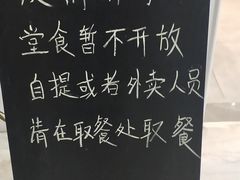 堂食暂不开放
自提或者外卖人员
请在取餐处取餐